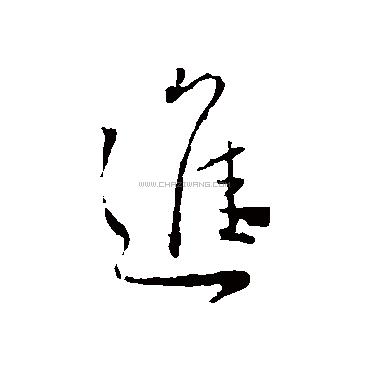 進
WWW.CHAZIWANG.COM